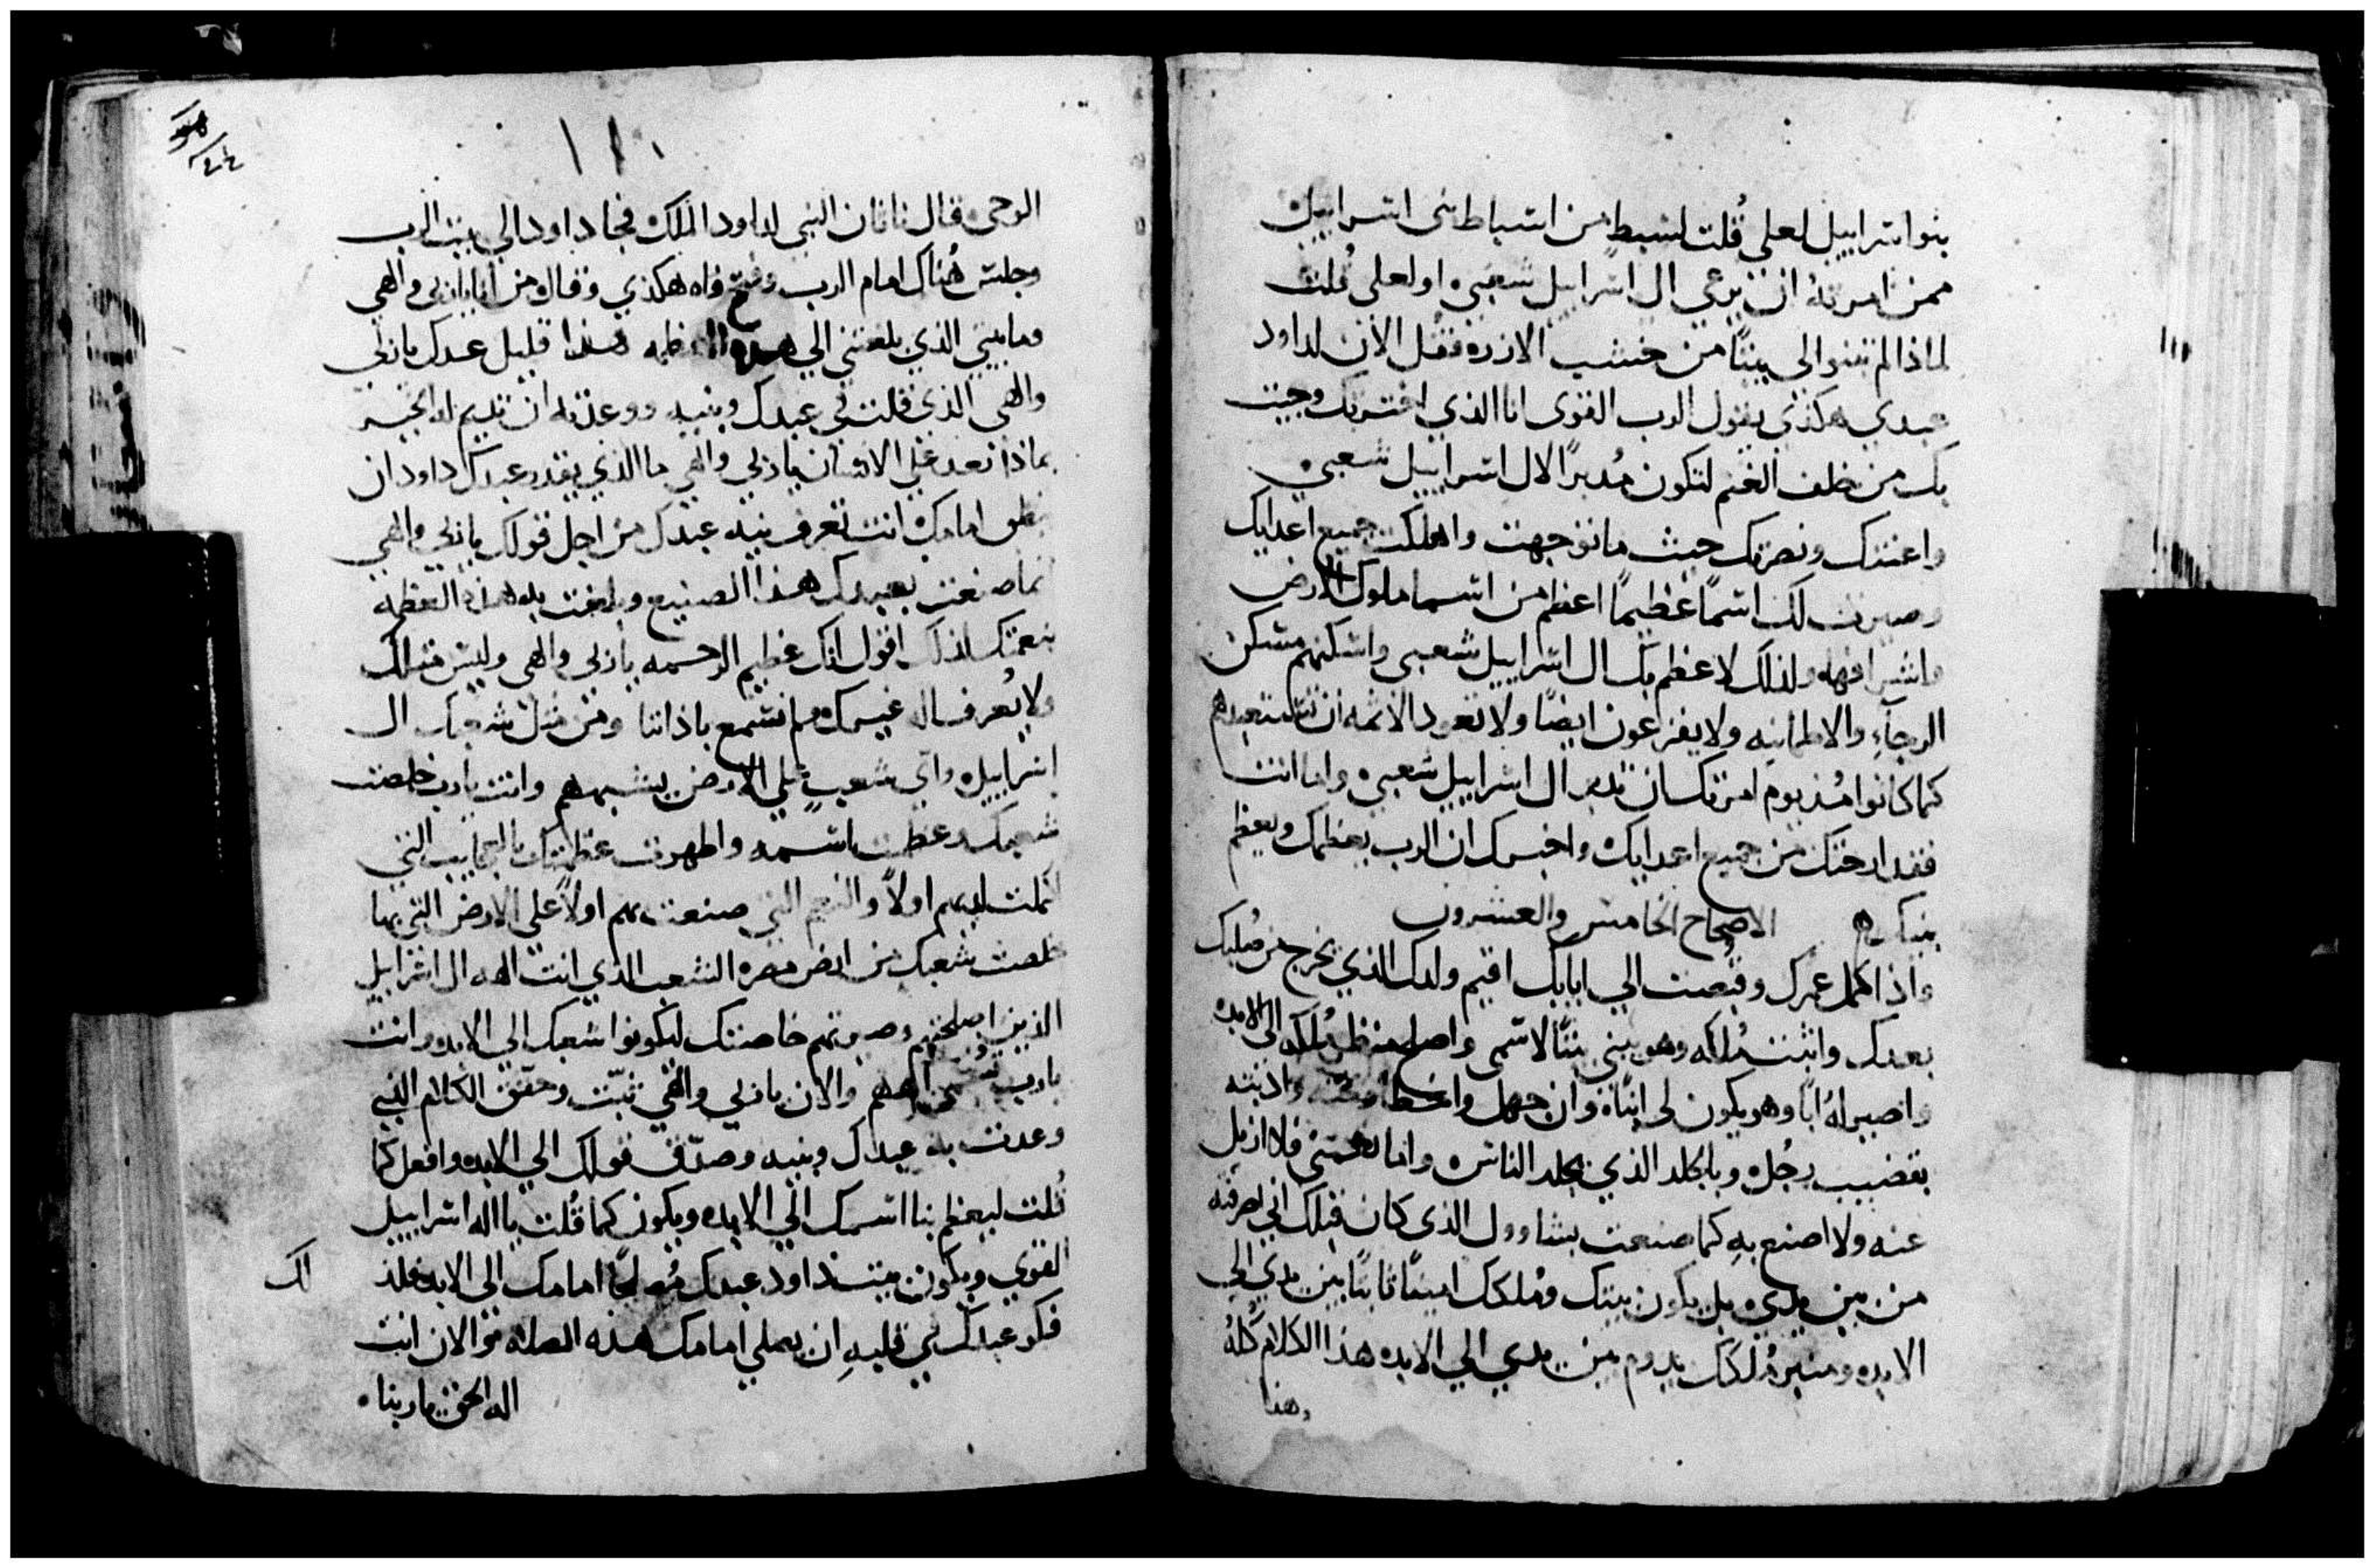 بنو اسراييل لعلي قُلت لسبط من اسباط بني اسراييل
ممن امرته ان يرعي ال اسراييل شعبي او لعلي قُلت
لماذا لم تبنوا لي بيتًا من خشب الارزه فقُل الان لداود
عبدي هكذي يقول الرب القوي انا الذي اخترتك وجيت
بك من خلف الغنم لتكون مُدبرًا لال اسراييل شعبي
واعنتك ونصرتك حيث ما توجهت واهلكت جميع اعدايك
وصيرت لك اسمًا عظيمًا اعظم من اسما ملوك الارض
واشرافها ولذلك لاعظم بك ال اسراييل شعبي واسكنهم مسكن
الرجآء والاطمانينه ولا يفزعون ايضًا ولا تعود الاثمه ان تستعبدهم
كما كانوا مُنذ يوم امرتك ان تدبر ال اسراييل شعبي واما انت
فقد ارحتك من جميع اعدايك واخبرك ان الرب يعظمك ويعظم
بيتك الاصحاح الخامس والعشرون
واذا كمل عمرك وقبضت الي ابايك اقيم ولدك الذي يخرج من صُلبك
بعدك واثبت مُلكه وهو يبني بيتًا لاسمي واصلح منظر مُلكه الي الابد
واصير لهُ ابًا وهو يكون لي ابنًا وان جهل واخطا وادبته
بقضيب رجُل وبالجلد الذي يجلد الناس واما نعمتي فلا ازيل
عنه ولا اصنع بهِ كما صنعت بشاوول الذي كان قبلك اني صرفته
من بين يدي بل يكون بيتك ومُلكك امينًا ثابتًا بين يدي الي
الابد ومنبر مُلكك يدوم بين يدي الي الابد هذا الكلام كُلهُ
وهذا
١١٠
الوحي قال ناتان النبي لداود الملك فجا داود الي بيت الرب
وجلس هُناك امام الرب وفتح فاه هكذي وقال من انا يا ربي والهي
وما بيتي الذي بلغتني الي هذه العظمه هذا قليل عندك يا ربي
والهي الذي قلت في عبدك وبنيه ووعدته ان تديم له الخير
بماذا تعد علي الانسان يا ربي والهي ما الذي يقدر عبدك داود ان
ينطق امامك انت تعرف نية عبدك من اجل قولك يا ربي والهي
انما صنعت بعبدك هذا الصنيع وبلغت به هذه العظمه
بنعمتك لذلك اقول انك عظيم الرحمه يا ربي والهي وليس مثلك
ولا يُعرف اله غيرك مما نسمع باذاننا ومن مثل شعبك ال
اسراييل واي شعبٍ علي الارض يشبههم وانت يا رب خلصت
شعبك وعظمت اسمه واظهرت عظمتك بالعجايب التي
كملت لديهم اولاً والنعم التي صنعت بهم اولاً علي الارض التي بها
خلصت شعبك من ارض مصر الشعب الذي انت اله ال اسراييل
الذين اصلحتهم وصيرتهم خاصتك ليكونوا شعبك الي الابد وانت
يا رب الههم والان يا ربي والهي ثبّت وحقق الكلام الذي
وعدت به عبدك وبنيه وصدّق قولك الي الابد وافعل كما
قُلت ليعظم بنا اسمك الي الابد ويكون كما قُلت يا اله اسراييل
القوي ويكون بيت داود عبدك مُصلحًا امامك الي الابد فلذ
لك
فكر عبدك في قلبهِ ان يصلي امامك هذه الصلاه والان انت
اله الحق يا ربنا